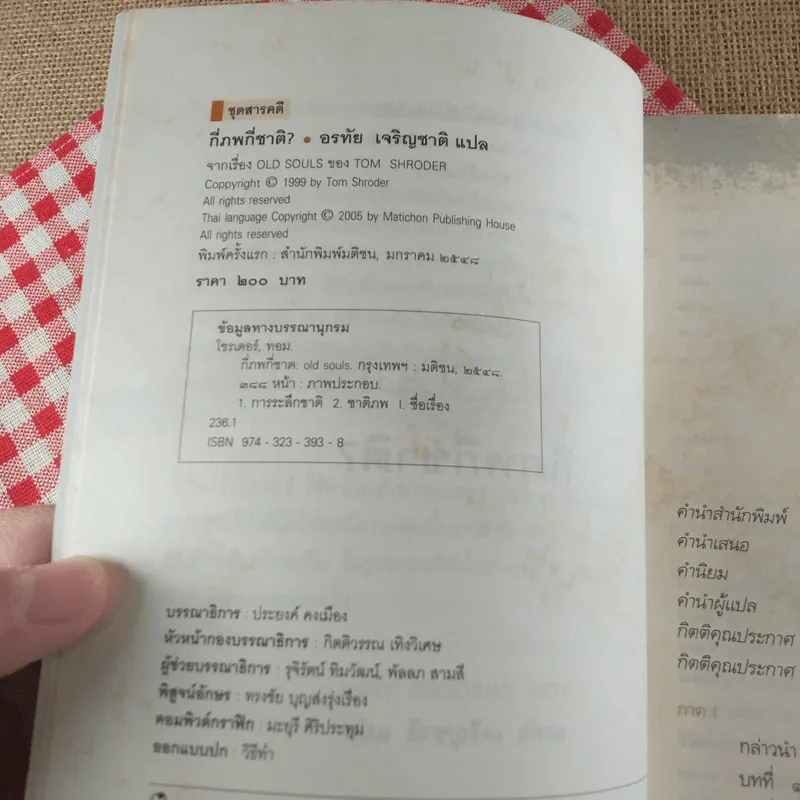 ชุดสารคดี
กี่ภพกี่ชาติ? • อรทัย เจริญชาติ แปล
จากเรื่อง OLD SOULS ของ TOM SHRODER
Coppyright © 1999 by Tom Shroder
All rights reserved
Thai language Copyright © 2005 by Matichon Publishing House
All rights reserved
พิมพ์ครั้งแรก : สำนักพิมพ์มติชน, มกราคม ๒๕๔๘
ราคา ๒๐๐ บาท
ข้อมูลทางบรรณานุกรม
โชรเดอร์, ทอม.
กี่ภพกี่ชาต: old souls. กรุงเทพฯ : มติชน, ๒๕๔๘.
๓๘๘ หน้า : ภาพประกอบ.
1. การระลึกชาติ 2. ชาติภพ I. ชื่อเรื่อง
236.1
ISBN 974 - 323 - 393 - 8
บรรณาธิการ : ประยงค์ คงเมือง
หัวหน้ากองบรรณาธิการ : กิตติวรรณ เทิงวิเศษ
ผู้ช่วยบรรณาธิการ : รุจิรัตน์ ทิมวัฒน์, พัลลภ สามสี
พิสูจน์อักษร : ทรงชัย บุญส่งรุ่งเรือง
คอมพิวต์กราฟิก : มะยุรี ศิริประทุม
ออกแบบปก : วิธีทำ
คำนำสำนักพิมพ์
คำนำเสนอ
คำนิยม
คำนำผู้แปล
กิตติคุณประกาศ
กิตติคุณประกาศ
ภาค ๑
กล่าวนำ
บทที่ ๑